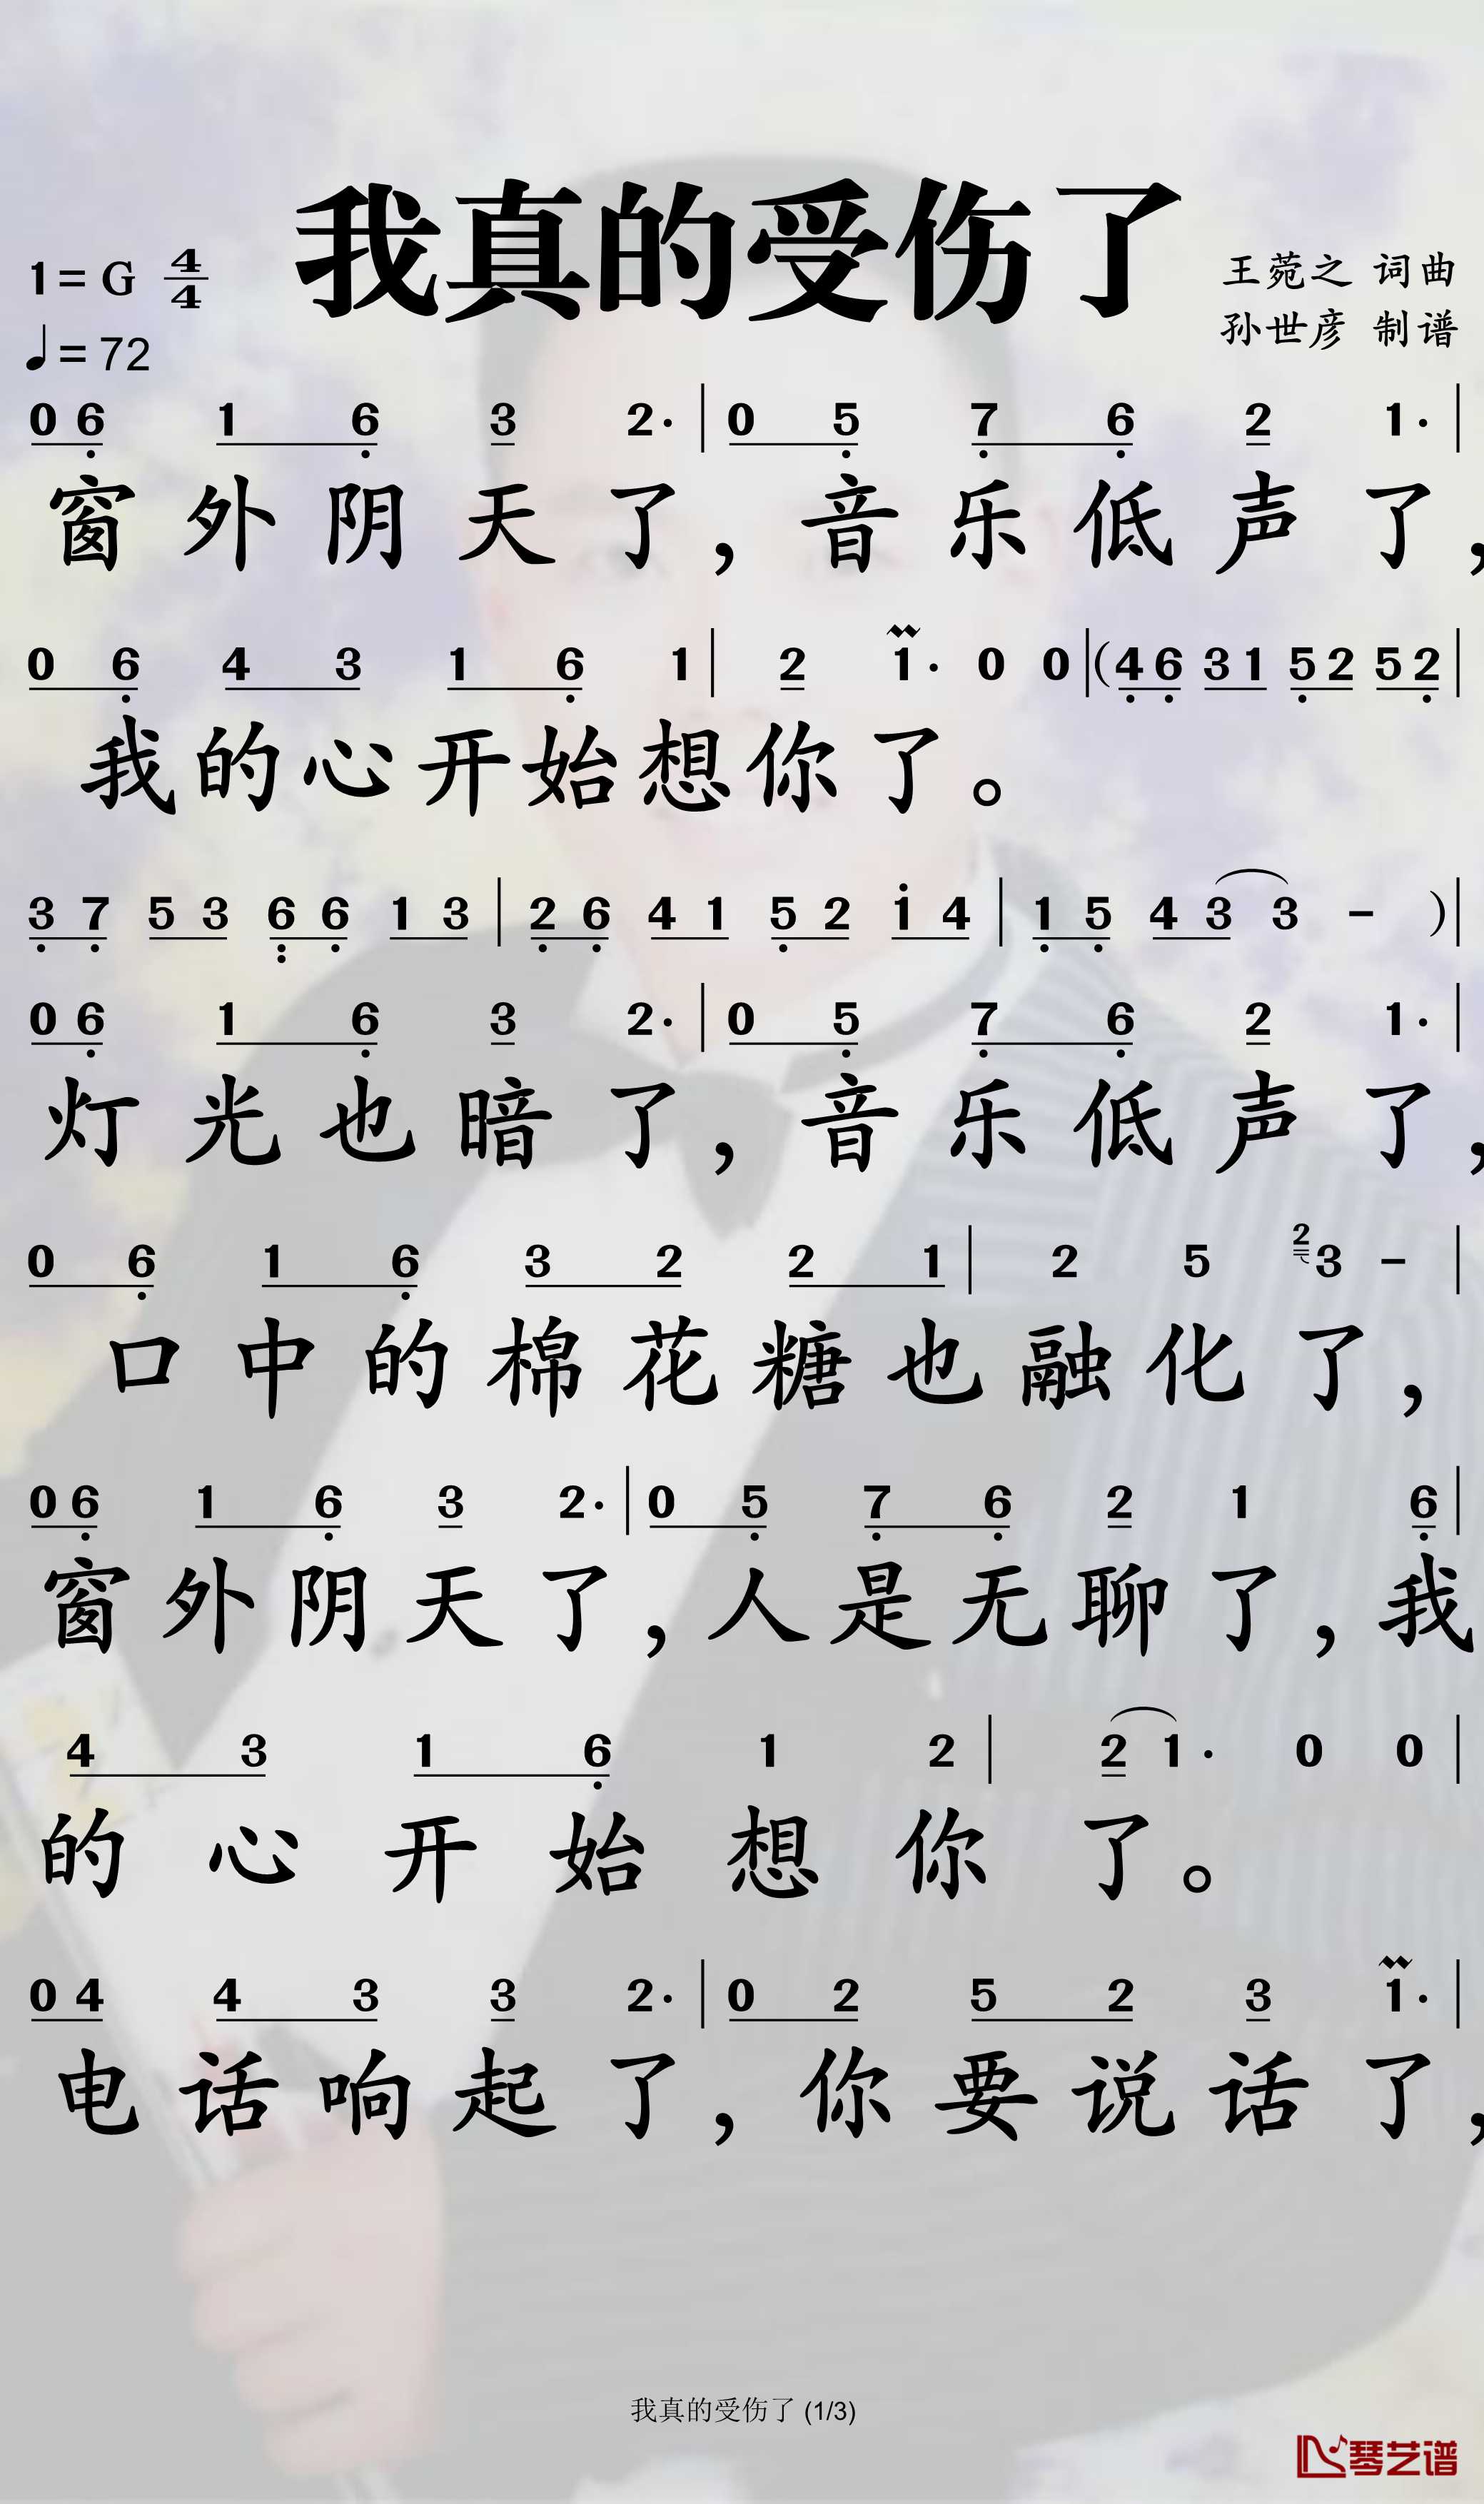 我真的受伤了
1=G 4/4
王菀之 词曲
♩=72
孙世彦 制谱
0 6 1 6 3 2· | 0 5 7 6 2 1· |
窗外阴天了，音乐低声了，
0 6 4 3 1 6 1 | 2 1· 0 0 |(4 6 3 1 5 2 5 2 |
我的心开始想你了。
3 7 5 3 6 6 1 3 | 2 6 4 1 5 2 1 4 | 1 5 4 3 3 - )|
0 6 1 6 3 2· | 0 5 7 6 2 1· |
灯光也暗了，音乐低声了，
0 6 1 6 3 2 2 1 | 2 5 2 3 - |
口中的棉花糖也融化了，
0 6 1 6 3 2· | 0 5 7 6 2 1 6 |
窗外阴天了，人是无聊了，我
4 3 1 6 1 2 | 2 1· 0 0 |
的心开始想你了。
0 4 4 3 3 2· | 0 2 5 2 3 1· |
电话响起了，你要说话了，
我真的受伤了 (1/3)
琴艺谱